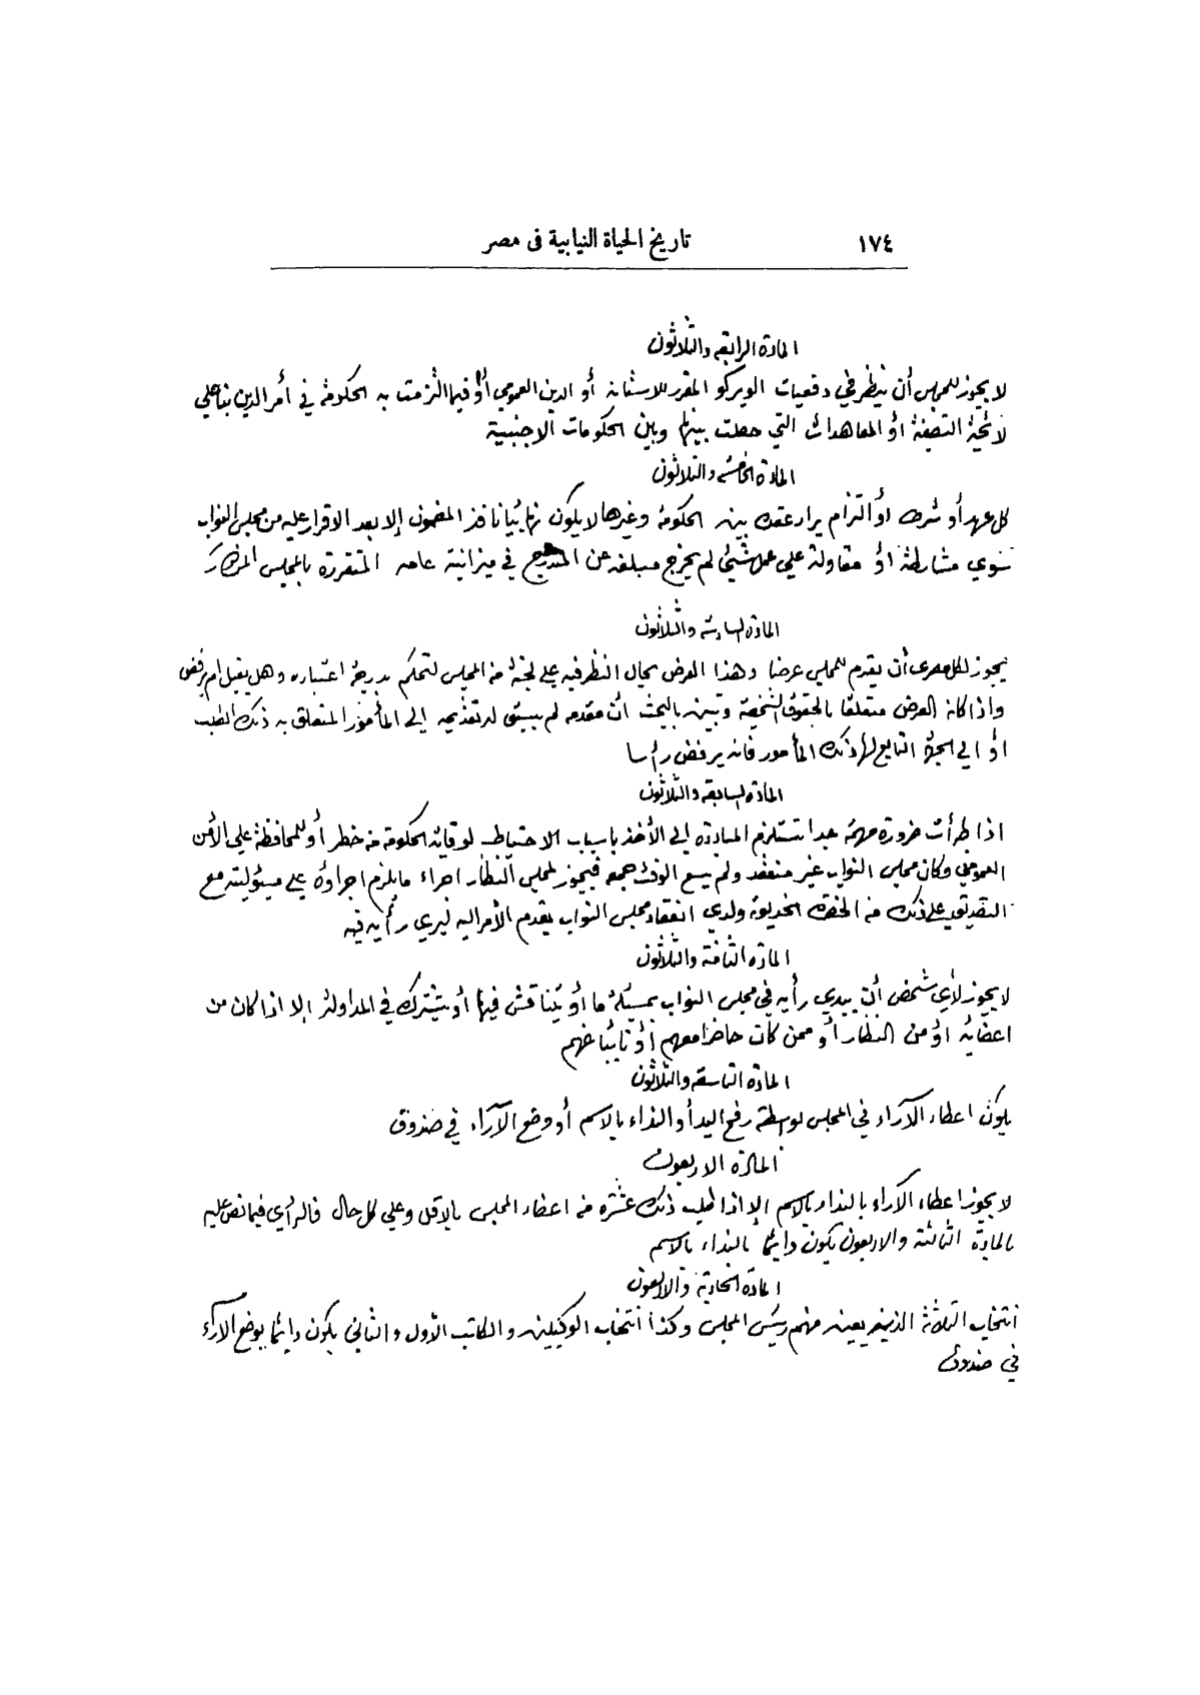 ١٧٤ تاريخ الحياة النيابية فى مصر
المادة الرابعة والثلاثون
لا يجوز للمجلس أن ينظر في دفعيات الويركو المقرر للاستانة أو الدين العمومي أو فيما التزمت به الحكومة في أمر الدين بناء علي
لائحة التصفية أو المعاهدات التي حصلت بينها وبين الحكومات الاجنبية
المادة الخامسة والثلاثون
كل عهد أو شرط أو التزام يراد عقده بين الحكومة وغيرها لا يكون نهائيا نافذ المضمون إلا بعد الاقرار عليه من مجلس النواب
سوي مشارطة أو مقاولة علي عمل شيئ لم يخرج مبلغه عن المندرج في ميزانية عامه المتقررة بالمجلس المذكور
المادة السادسة والثلاثون
يجوز لكل مصرى أن يقدم للمجلس عرضا وهذا العرض يحال النظر فيه علي لجنة من المجلس لتحكم بدرجة اعتباره وهل يقبل ام يرفض
واذا كان العرض متعلقا بالحقوق الشخصية وتبين بالبحث ان مقدمه لم يسبق له تقديمه إلي المأمور المتعلق به ذلك الطلب
أو الي الجهة التابع لها ذلك المأمور فانه يرفض رأسا
المادة السابعة والثلاثون
اذا طرأت ضرورة مهمة جدا تستلزم المبادرة إلي الأخذ باسباب الاحتياط لوقاية الحكومة من خطر أو للمحافظة علي الأمن
العمومي وكان مجلس النواب غير منعقد ولم يسع الوقت جمعه فيجوز لمجلس النظار اجراء ما يلزم اجراؤه علي مسئوليته مع
التصديق علي ذلك من الحضرة الخديوية ولدي انعقاد مجلس النواب يقدم الأمر اليه ليري رأيه فيه
المادة الثامنة والثلاثون
لا يجوز لأي شخص أن يبدي رأيه في مجلس النواب بمسئلة ما أو يتناقش فيها أو يشترك في المداولة إلا اذا كان من
اعضائه أو من النظار أو ممن كان حاضرا معهم أو نائبا عنهم
المادة التاسعة والثلاثون
يكون اعطاء الآراء في المجلس بواسطة رفع اليد أو النداء بالاسم أو وضع الآراء في صندوق
المادة الاربعون
لا يجوز اعطاء الآراء بالنداء بالاسم إلا اذا طلب ذلك عشرة من اعضاء المجلس بالاقل وعلي كل حال فالرأى فيما نص عليه
بالمادة الثالثة والاربعون يكون دائما بالنداء بالاسم
المادة الحادية والاربعون
انتخاب الثلاثة الذين يعين منهم رئيس المجلس وكذا انتخاب الوكيلين والكاتب الأول والثاني يكون دائما بوضع الآراء
في صندوق